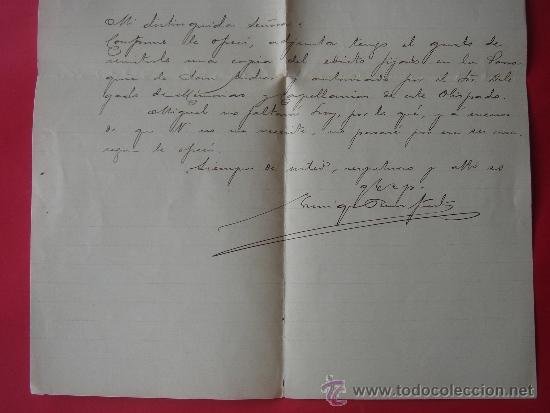 Mi distinguida señora:
Conforme le ofrecí, adjunta tengo el gusto de
remitirle una copia del edicto fijado en la Parro
quia de San Andrés y autorizado por el Sr. Dele
gado de Memorias y Capellanías de este Obispado.
Miguel no faltará hoy, por lo que, y a menos
de que V. no me necesite, no pasaré por esa su casa
según le ofrecí.
Siempre de usted, respetuoso y affmo ss
q b s p.
Enrique
www.todocoleccion.net